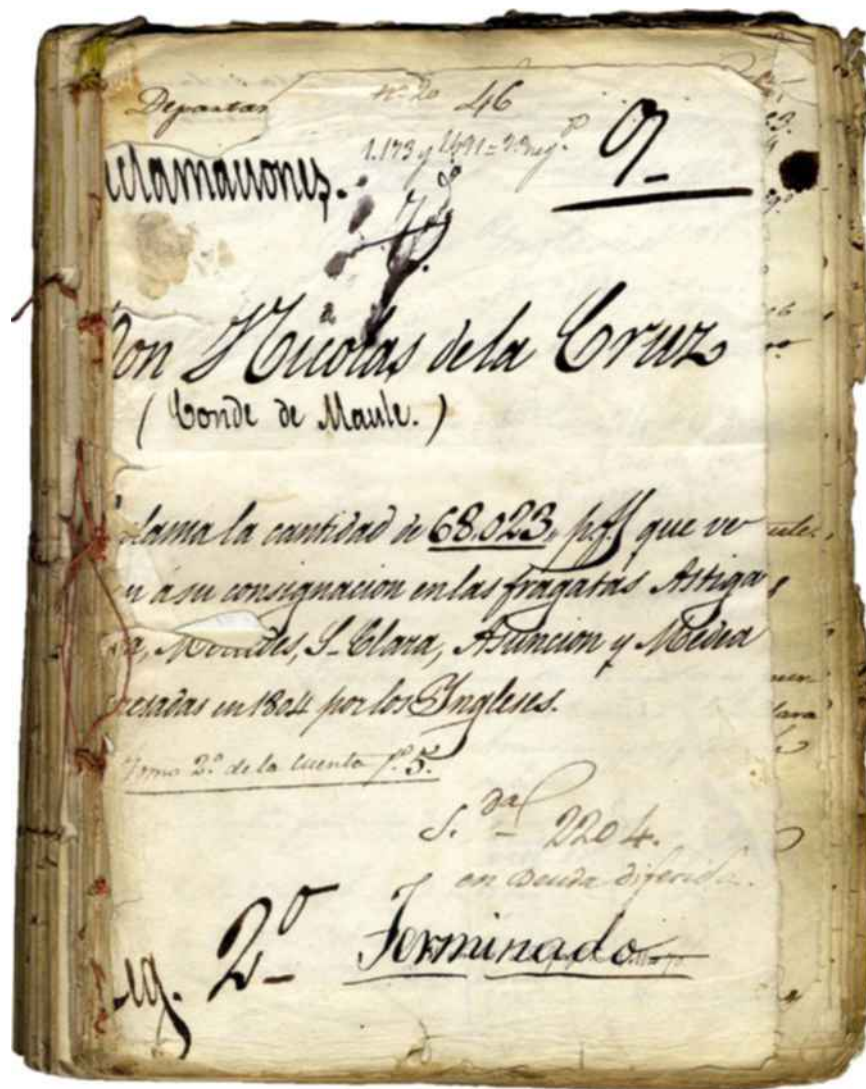 Departam
nº 20 46
1.173 y 1691 = 
9
clamaciones.
Don Nicolás de la Cruz
(Conde de Maule.)
clama la cantidad de 68.023, pfs que ve
n á su consignacion en las fragatas Astiga
a, Mercedes, S. Clara, Asuncion y Medea
resadas en 1804 por los Ingleses.
Tomo 2º de la cuenta fº 5.
S. da 2204.
en deuda diferida.
Leg. 2º Terminado